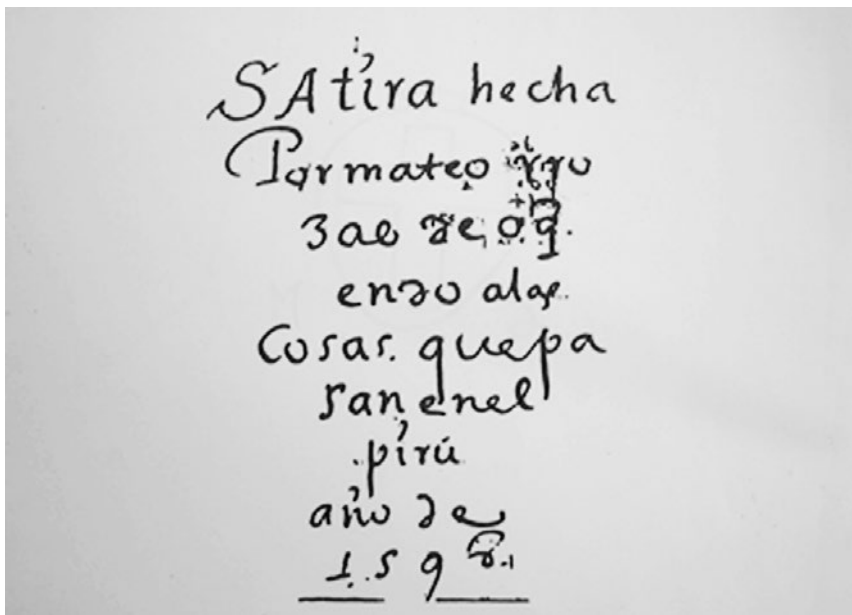 SAtira hecha
Por mateo
de oq.
endo alas
Cosas. quepa
san enel
pirú
año de
1598